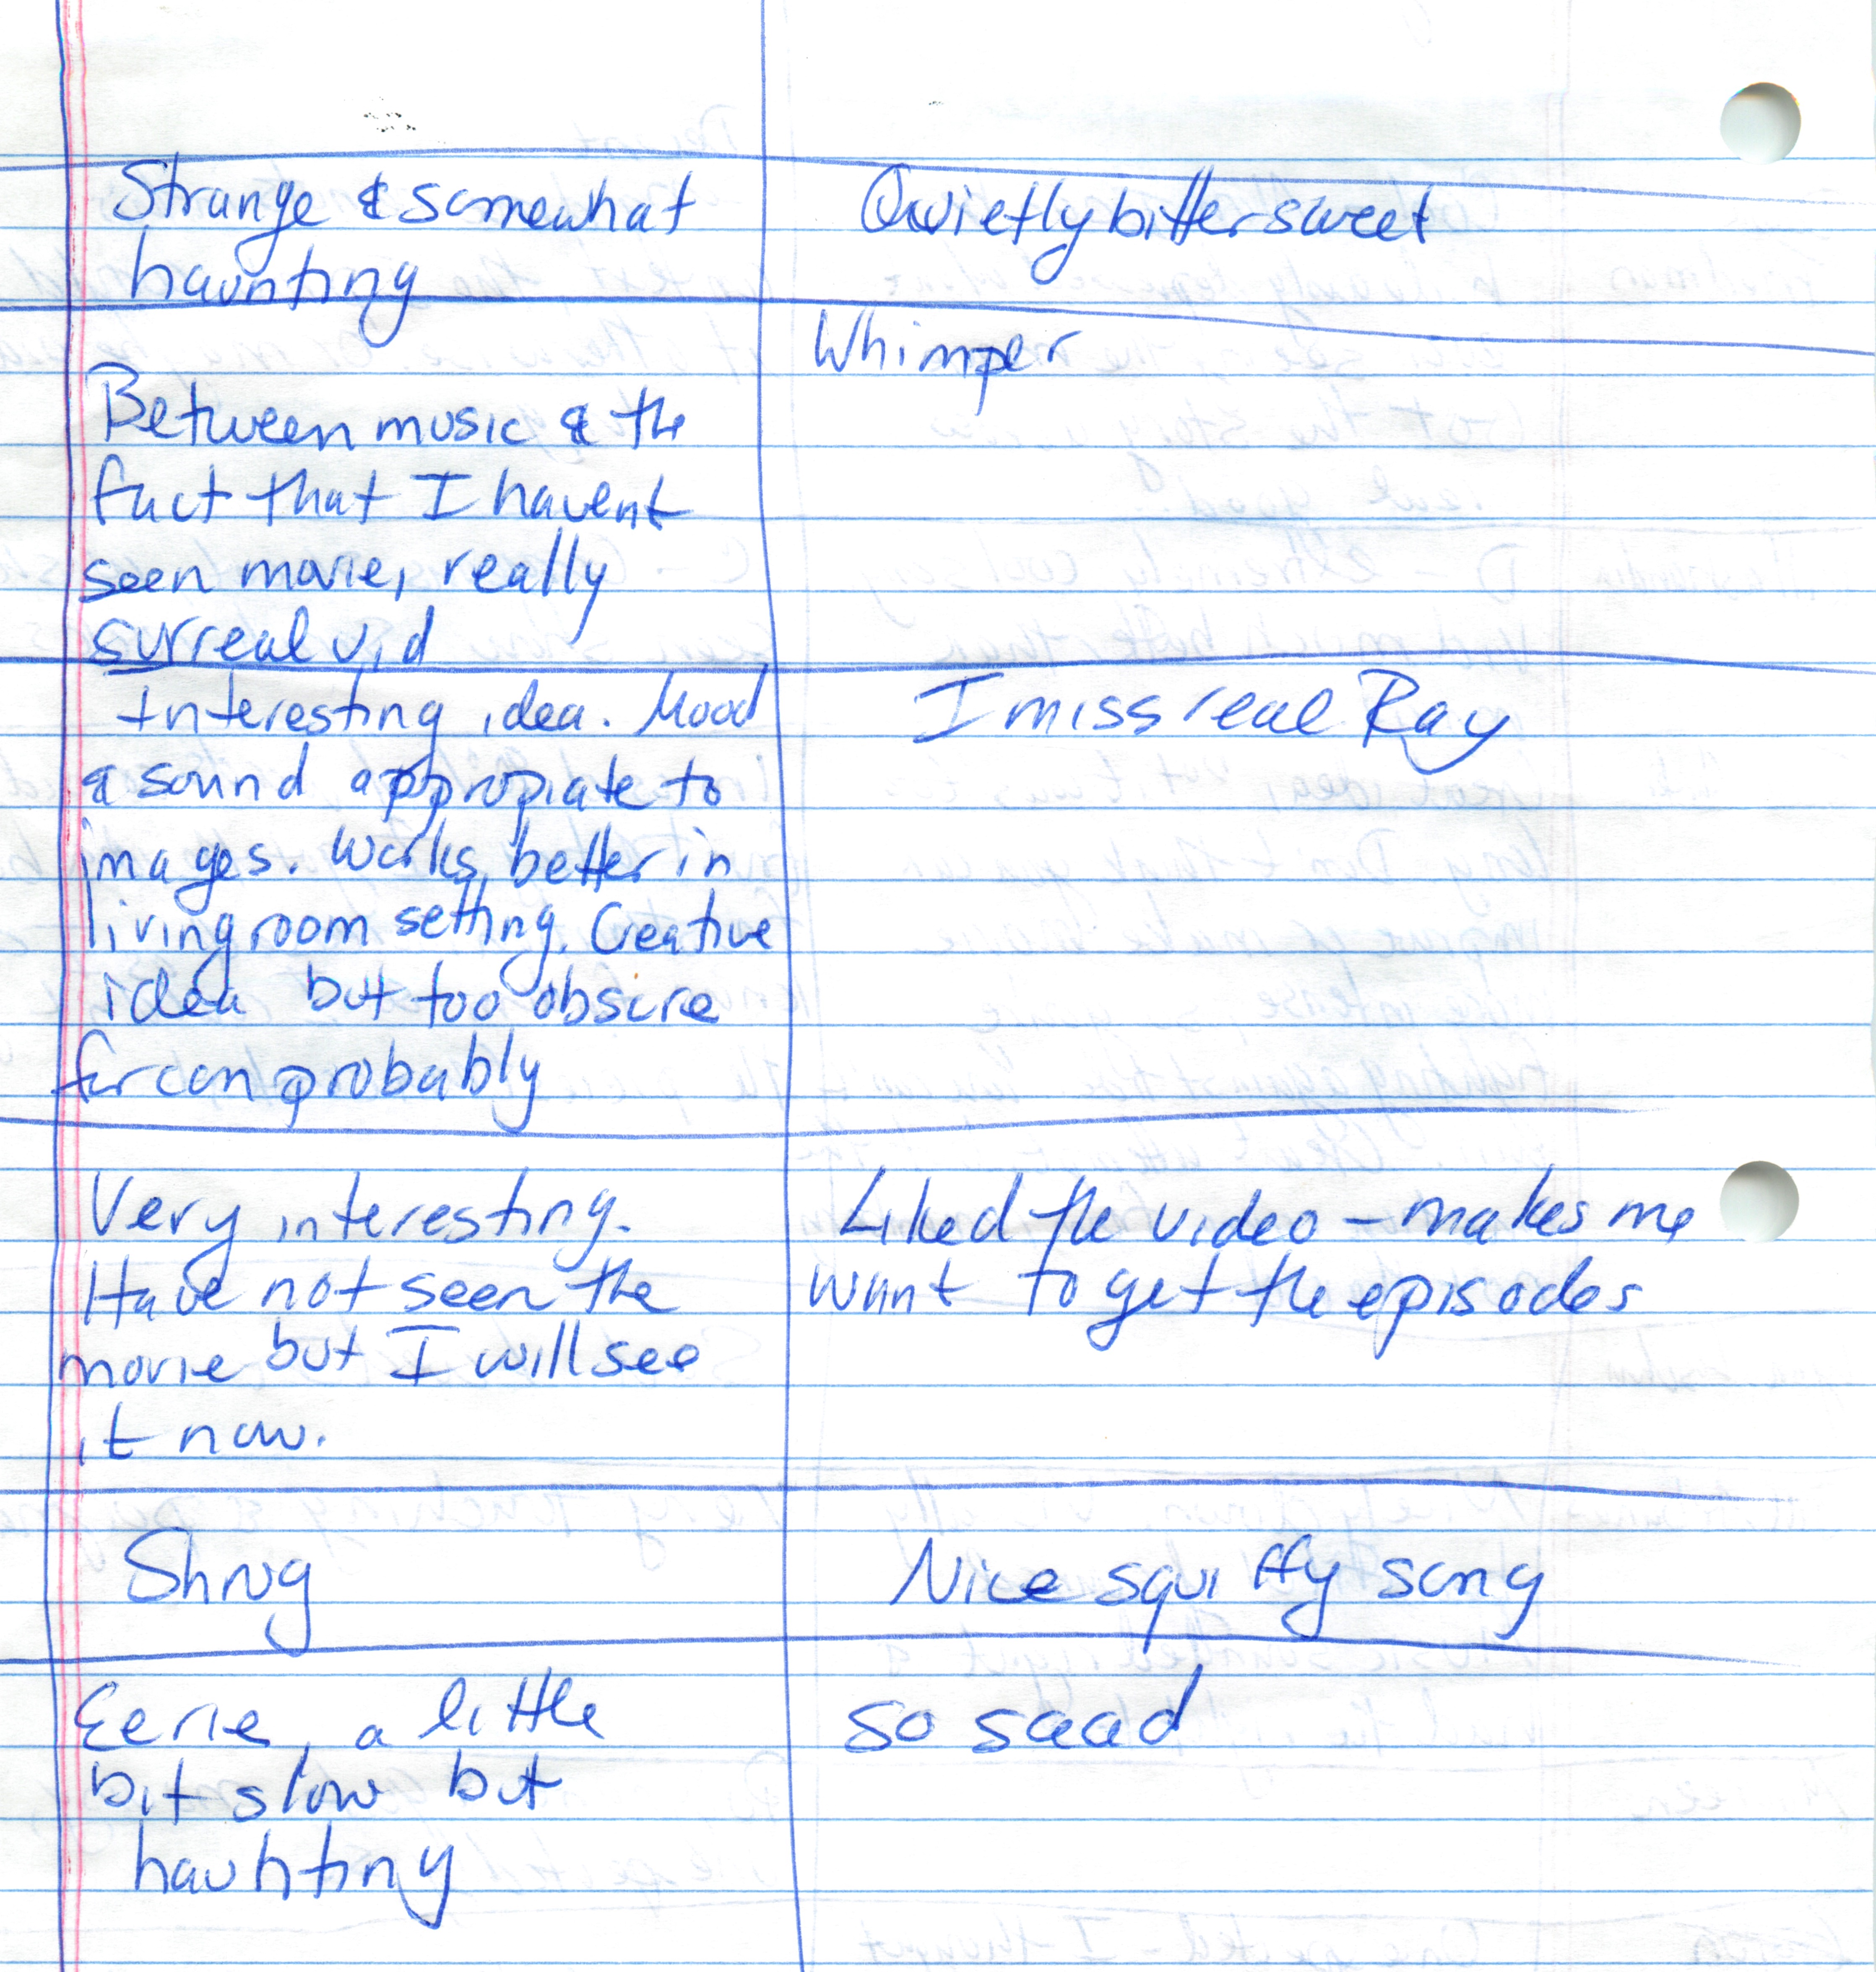 Strange & somewhat
haunting
Quietly bittersweet
Between music & the
fact that I havent
seen movie, really
surreal vid
Whimper
Interesting idea. Mood
& sound appropiate to
images. Works better in
living room setting. Creative
idea but too obscure
for con probably
I miss real Ray
Very interesting.
Have not seen the
movie but I will see
it now.
Liked the video - makes me
want to get the episodes
Shrug
Nice squiffy song
Eerie, a little
bit slow but
haunting
so saad